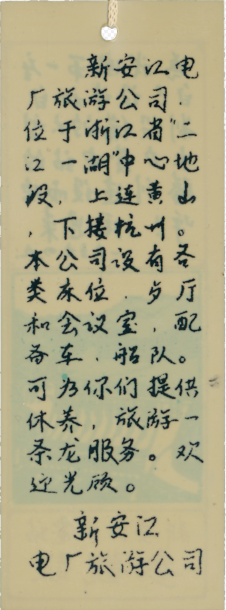 新安江电
厂旅游公司.
位于浙江省"二
江一湖"中心地
段,上连黄山
,下接杭州。
本公司设有各
类床位.歺厅
和会议室,配
备车.船队。
可为你们提供
休养,旅游一
条龙服务。欢
迎光顾。
新安江
电厂旅游公司